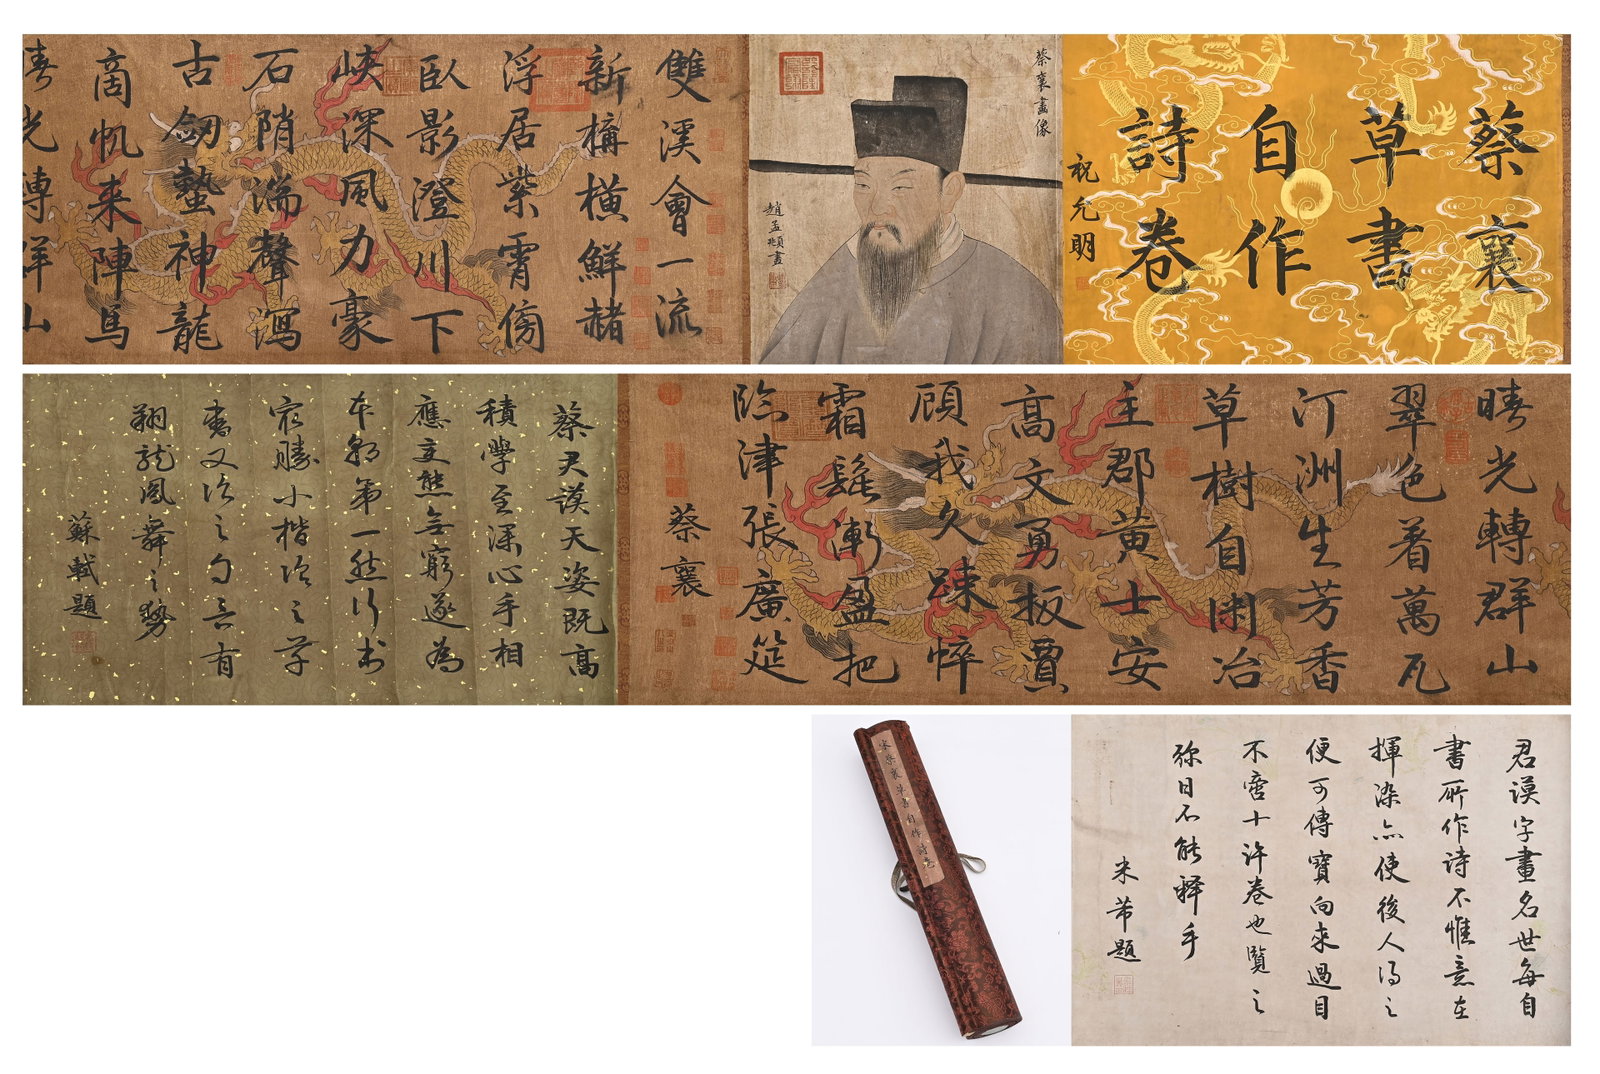 蔡襄
草書
自作
詩卷
祝允明
蔡襄畫像
趙孟頫畫
雙溪會一流
新構橫鮮赭
浮居紫霄傍
臥影澄川下
峡深風力豪
石陗湍聲瀉
古劒蟄神龍
商帆来陣馬
晴光轉群山
晴光轉群山
翠色着萬瓦
汀洲生芳香
草樹自閑冶
主郡黄士安
高文勇扳賈
顾我久踈悴
霜髭漸盈把
臨津張廣筵
蔡襄
蔡君謨天姿既高
積學至深心手相
應变態無窮遂為
本朝第一然行书
最勝小楷次之草
書又次之自言有
翔龍鳳舞之勢
蘇軾題
君謨字畫名世每自
書所作詩不惟意在
揮染亦使後人得之
便可傳寶向来過目
不啻十許卷也覽之
弥日不能释手
米芾題
宋蔡襄草書自作詩卷